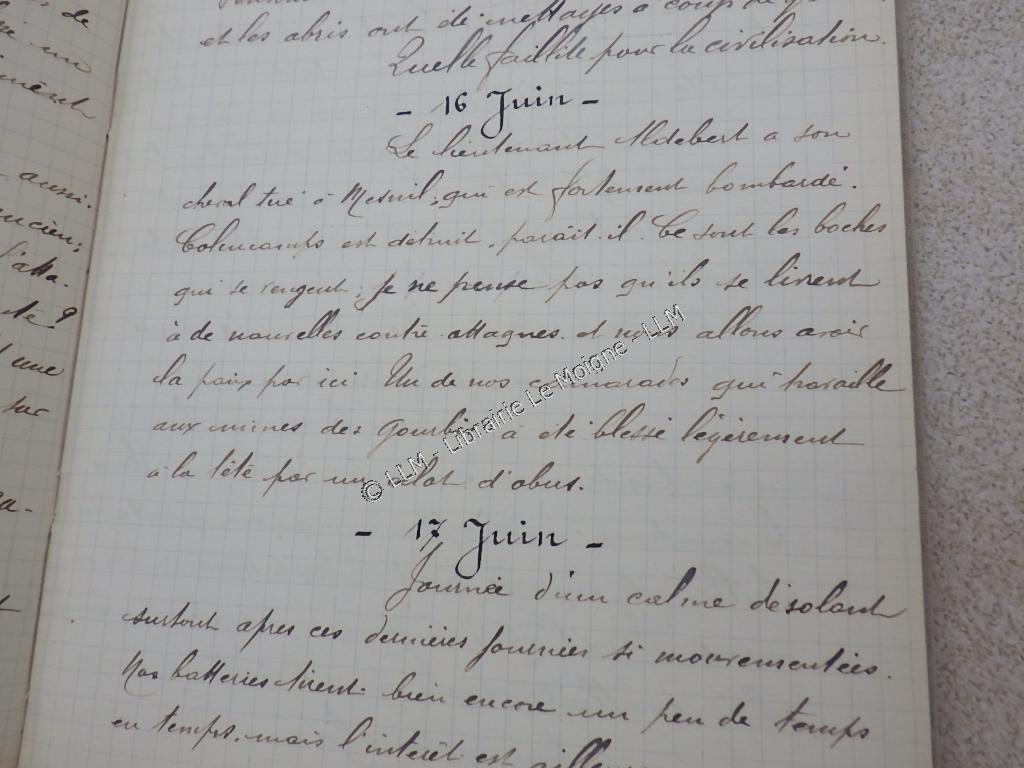 et les abris ont été nettoyés à coups de
Quelle faillite pour la civilisation.
- 16 Juin -
Le lieutenant Aldebert a son
cheval tué à Mesnil, qui est fortement bombardé.
Colincamps est détruit, paraît-il. Ce sont les boches
qui se vengent. Je ne pense pas qu'ils se livrent
à de nouvelles contre-attaques. et nous allons avoir
la paix par ici. Un de nos camarades qui travaille
aux mines des Gourbis, a été blessé légèrement
à la tête par un éclat d'obus.
- 17 Juin -
Journée d'un calme désolant
surtout après ces dernières journées si mouvementées.
Nos batteries tirent bien encore un peu de temps
en temps. mais l'intérêt est
de
un
aussi.
l'atta-
une
sur
© LLM - Librairie Le Moigne - LLM